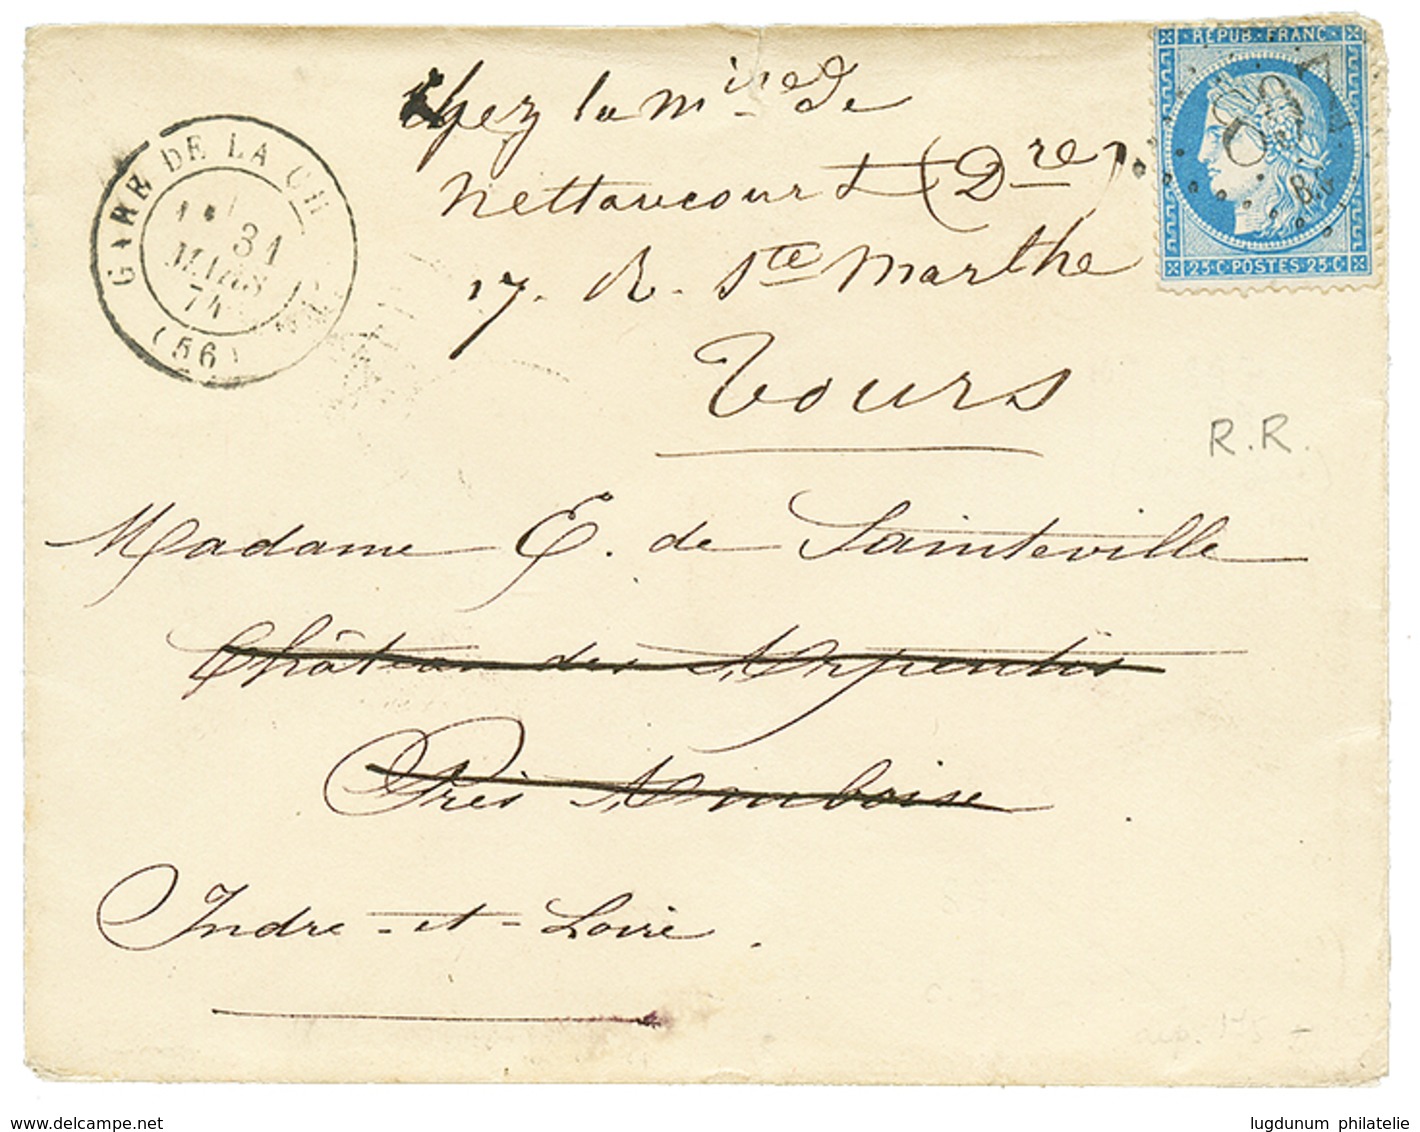 Chez la Mise de
Nettancourt (Dre)
17. R. Ste Marthe
Tours
GARE DE LA CH
31
MARS
74
(56)
REPUB. FRANC.
897
Bis
25.C POSTES 25.C
R.R.
Madame E. de Sainteville
Château des Arpentis
Près Amboise
Indre-et-Loire.
lugdunum philatelie